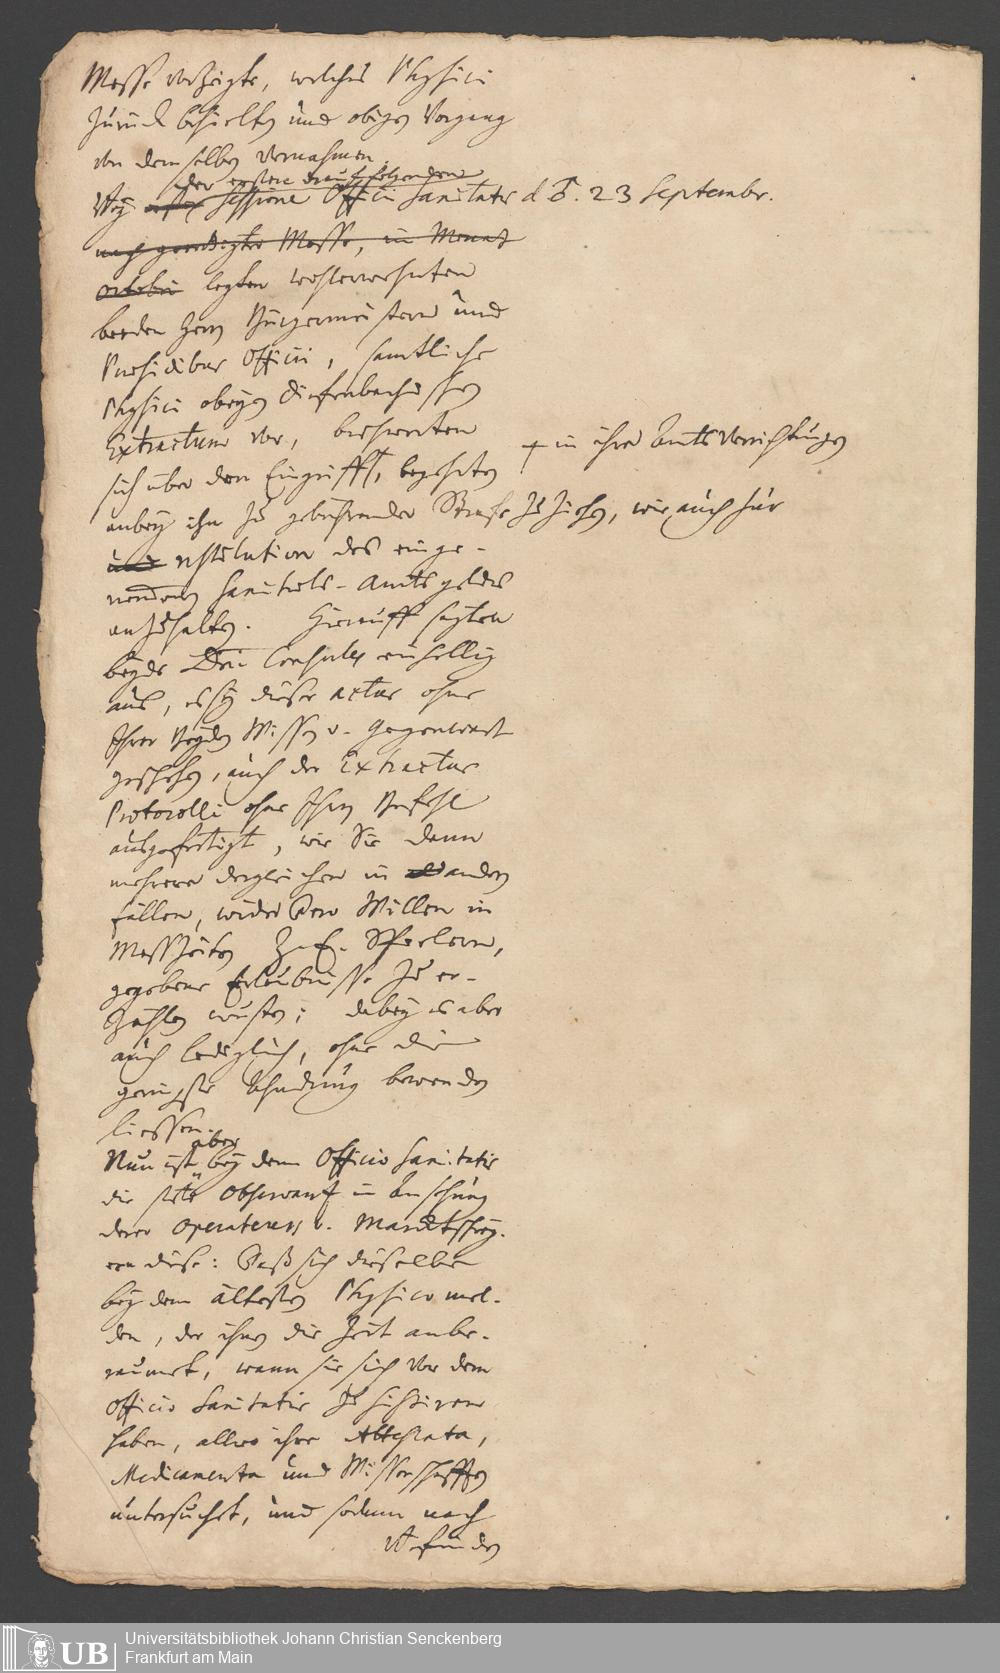 Messe vorzeigte, welches Physici
zurück behielten und obigen Vorgang
von demselben vernahmen.
der erstere drauf folgenden
Bey Sessione Officii Sanitatis d. 23 Septembr.
nach geendigter Messe, im Monat
Octobri legten wohlerwehnten
beeden Herrn Bürgermeistern und
Praesidibus Officii, samtliche
Physici obigen Diefenbachischen
Extractum vor, beschwerten
sich über den Eingriff, begehrten
+ in ihre Amts Verrichtungen
anbey ihn zu gebührender Strafe zu ziehen, wie auch zur
und restitution des einge-
nommenen Sanitäts-Amts geldes
anzuhalten. Hierauff sagten
beyde Dni Consules einhellig
aus, es sey dieser actus ohne
Ihrer beyden Wissen v. Gegenwart
geschehen, auch der Extractus
Protocolli ohne Ihren Befehl
ausgefertigt, wie Sie dann
mehrere dergleichen in andern
fällen, wider Dero Willen in
Messzeiten
gegebene Erlaubnisse zu er-
zählen wusten; dabey es aber
auch lediglich, ohne die
geringste Ahndung bewenden
liessen.
aber
Nun ist bey dem Officio Sanitatis
die stete Observanz in Ansehung
derer Operateurs v. Marcktschrey-
ern diese: Daß sich dieselbe
bey dem ältesten Physico mel-
den, der ihnen die Zeit anbe-
raumet, wann sie sich vor dem
Officio Sanitatis zu sistiren
haben, allwo ihre Attestata,
Medicamenta und Wissenschafften
untersucht, und sodann nach
Befinden
Universitätsbibliothek Johann Christian Senckenberg
Frankfurt am Main
UB